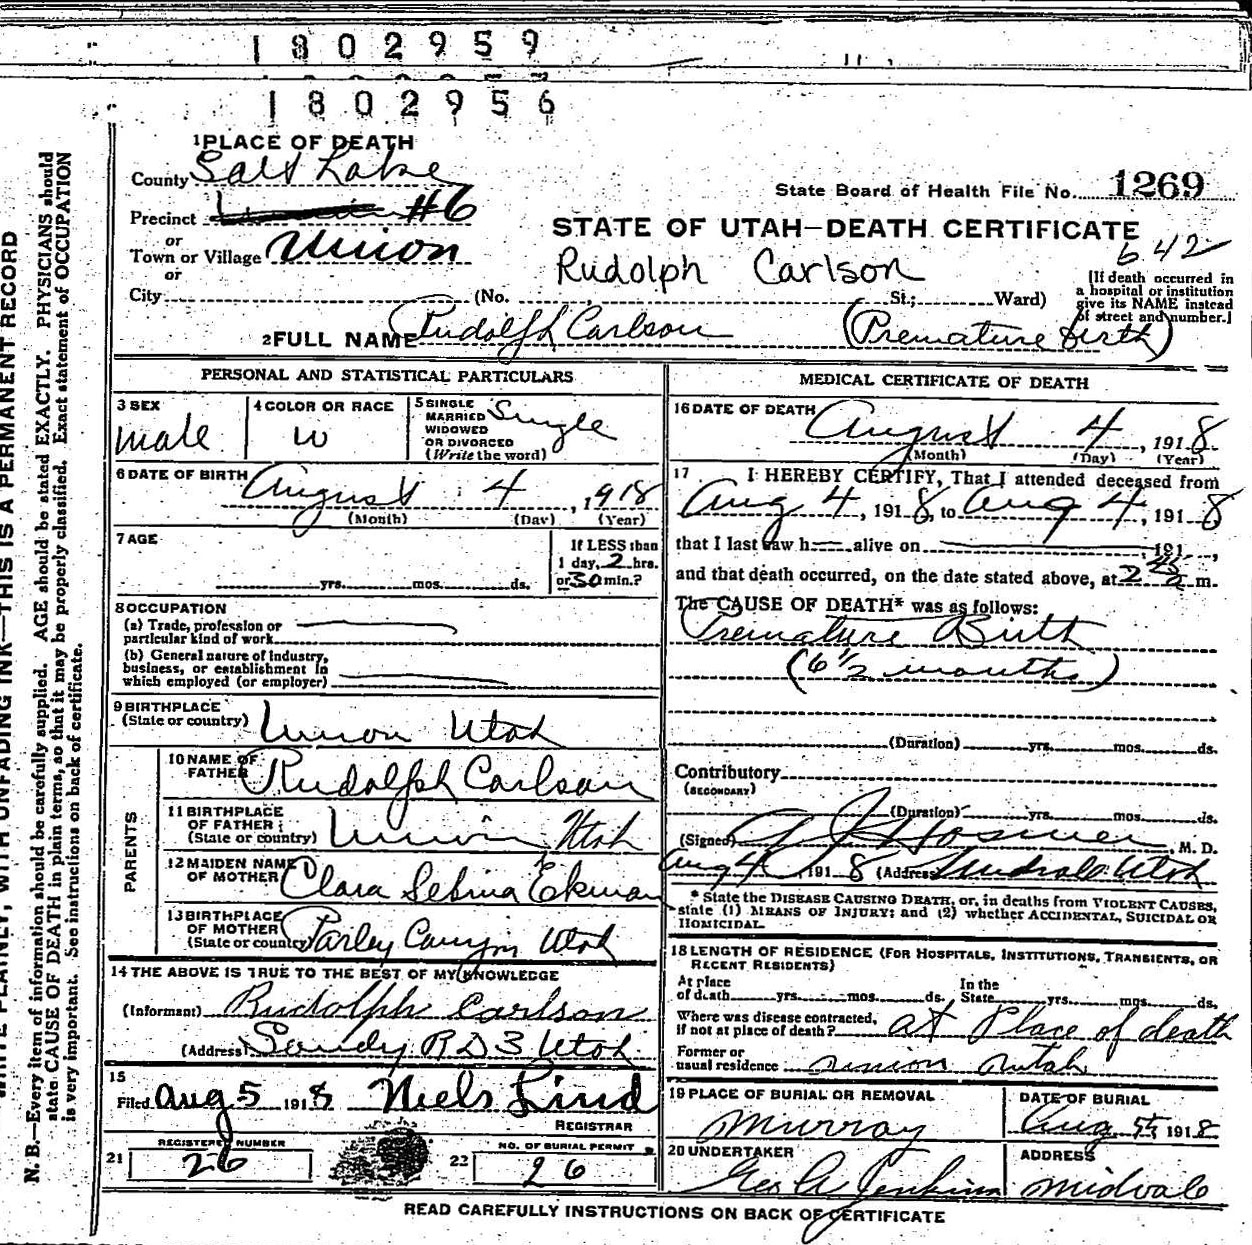 1802959
1802956
1 PLACE OF DEATH
County Salt Lake
State Board of Health File No. 1269
Precinct #6
STATE OF UTAH—DEATH CERTIFICATE
or
Town or Village Union
642
Rudolph Carlson
or
City (No. St.; Ward)
[If death occurred in
a hospital or institution
give its NAME instead
of street and number.]
2 FULL NAME Rudolph Carlson (Premature birth)
PERSONAL AND STATISTICAL PARTICULARS
3 SEX
male
4 COLOR OR RACE
W
5 SINGLE
MARRIED
WIDOWED
OR DIVORCED
(Write the word)
Single
6 DATE OF BIRTH
August 4, 1918
(Month) (Day) (Year)
7 AGE
yrs. mos. ds.
If LESS than
1 day, 2 hrs.
or 30 min.?
8 OCCUPATION
(a) Trade, profession or
particular kind of work
(b) General nature of industry,
business, or establishment in
which employed (or employer)
9 BIRTHPLACE
(State or country) Union Utah
PARENTS
10 NAME OF
FATHER Rudolph Carlson
11 BIRTHPLACE
OF FATHER
(State or country) Union Utah
12 MAIDEN NAME
OF MOTHER Clara Sebina Ekman
13 BIRTHPLACE
OF MOTHER
(State or country) Parley Canyon Utah
14 THE ABOVE IS TRUE TO THE BEST OF MY KNOWLEDGE
(Informant) Rudolph Carlson
(Address) Sandy R D 3 Utah
15
Filed Aug 5 1918 Niels Lind
REGISTRAR
21 REGISTERED NUMBER
26
22 NO. OF BURIAL PERMIT
26
MEDICAL CERTIFICATE OF DEATH
16 DATE OF DEATH
August 4, 1918
(Month) (Day) (Year)
17 I HEREBY CERTIFY, That I attended deceased from
Aug 4, 1918, to Aug 4, 1918
that I last saw h alive on , 191 ,
and that death occurred, on the date stated above, at 2 a m.
The CAUSE OF DEATH* was as follows:
Premature Birth
(6 1/2 months)
(Duration) yrs. mos. ds.
Contributory
(SECONDARY)
(Duration) yrs. mos. ds.
(Signed) A J Hosmer, M. D.
Aug 4 1918 (Address) Midvale Utah
* State the DISEASE CAUSING DEATH, or, in deaths from VIOLENT CAUSES,
state (1) MEANS OF INJURY; and (2) whether ACCIDENTAL, SUICIDAL OR
HOMICIDAL.
18 LENGTH OF RESIDENCE (FOR HOSPITALS, INSTITUTIONS, TRANSIENTS, OR
RECENT RESIDENTS)
At place
of death yrs. mos. ds.
In the
State yrs. mos. ds.
Where was disease contracted,
if not at place of death? at Place of death
Former or
usual residence Union Utah
19 PLACE OF BURIAL OR REMOVAL
Murray
DATE OF BURIAL
Aug. 5th 1918
20 UNDERTAKER
Geo A Jenkins
ADDRESS
Midvale
READ CAREFULLY INSTRUCTIONS ON BACK OF CERTIFICATE
WRITE PLAINLY, WITH UNFADING INK—THIS IS A PERMANENT RECORD
N. B.—Every item of information should be carefully supplied. AGE should be stated EXACTLY. PHYSICIANS should
state CAUSE OF DEATH in plain terms, so that it may be properly classified. Exact statement of OCCUPATION
is very important. See instructions on back of certificate.